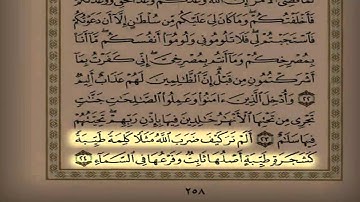 فَأَخْلَفْتُكُمْ وَمَا كَانَ لِىَ عَلَيْكُم مِّن سُلْطَٰنٍ إِلَّآ أَن دَعَوْتُكُمْ
فَٱسْتَجَبْتُمْ لِى فَلَا تَلُومُونِى وَلُومُوٓا۟ أَنفُسَكُم مَّآ أَنَا۠
بِمُصْرِخِكُمْ وَمَآ أَنتُم بِمُصْرِخِىَّ إِنِّى كَفَرْتُ بِمَآ
أَشْرَكْتُمُونِ مِن قَبْلُ إِنَّ ٱلظَّٰلِمِينَ لَهُمْ عَذَابٌ أَلِيمٌ ٢٢
وَأُدْخِلَ ٱلَّذِينَ ءَامَنُوا۟ وَعَمِلُوا۟ ٱلصَّٰلِحَٰتِ جَنَّٰتٍ
تَجْرِى مِن تَحْتِهَا ٱلْأَنْهَٰرُ خَٰلِدِينَ فِيهَا بِإِذْنِ رَبِّهِمْ تَحِيَّتُهُمْ
فِيهَا سَلَٰمٌ ٢٣ أَلَمْ تَرَ كَيْفَ ضَرَبَ ٱللَّهُ مَثَلًا كَلِمَةً طَيِّبَةً
كَشَجَرَةٍ طَيِّبَةٍ أَصْلُهَا ثَابِتٌ وَفَرْعُهَا فِى ٱلسَّمَآءِ ٢٤
٢٥٨